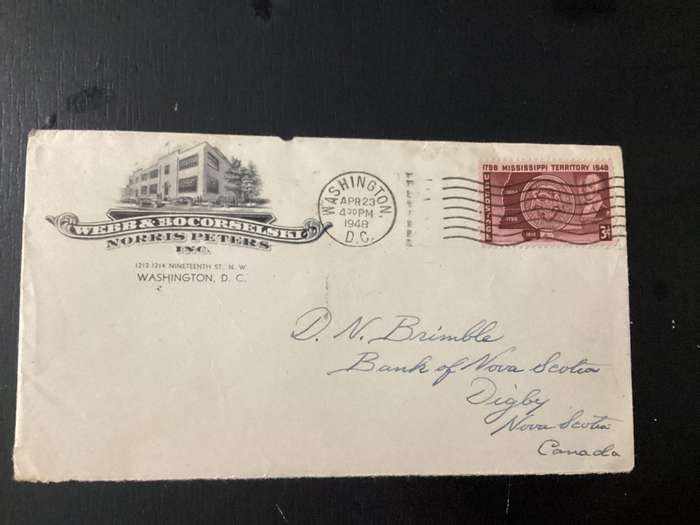 WEBB & BOCORSELSKI
NORRIS PETERS
INC.
1212-1214 NINETEENTH ST., N. W.
WASHINGTON, D. C.
WASHINGTON,
APR 23
4 30 PM
1948
D.C.
1798 MISSISSIPPI TERRITORY 1948
3¢
D. N. Brimble
Bank of Nova Scotia
Digby
Nova Scotia
Canada